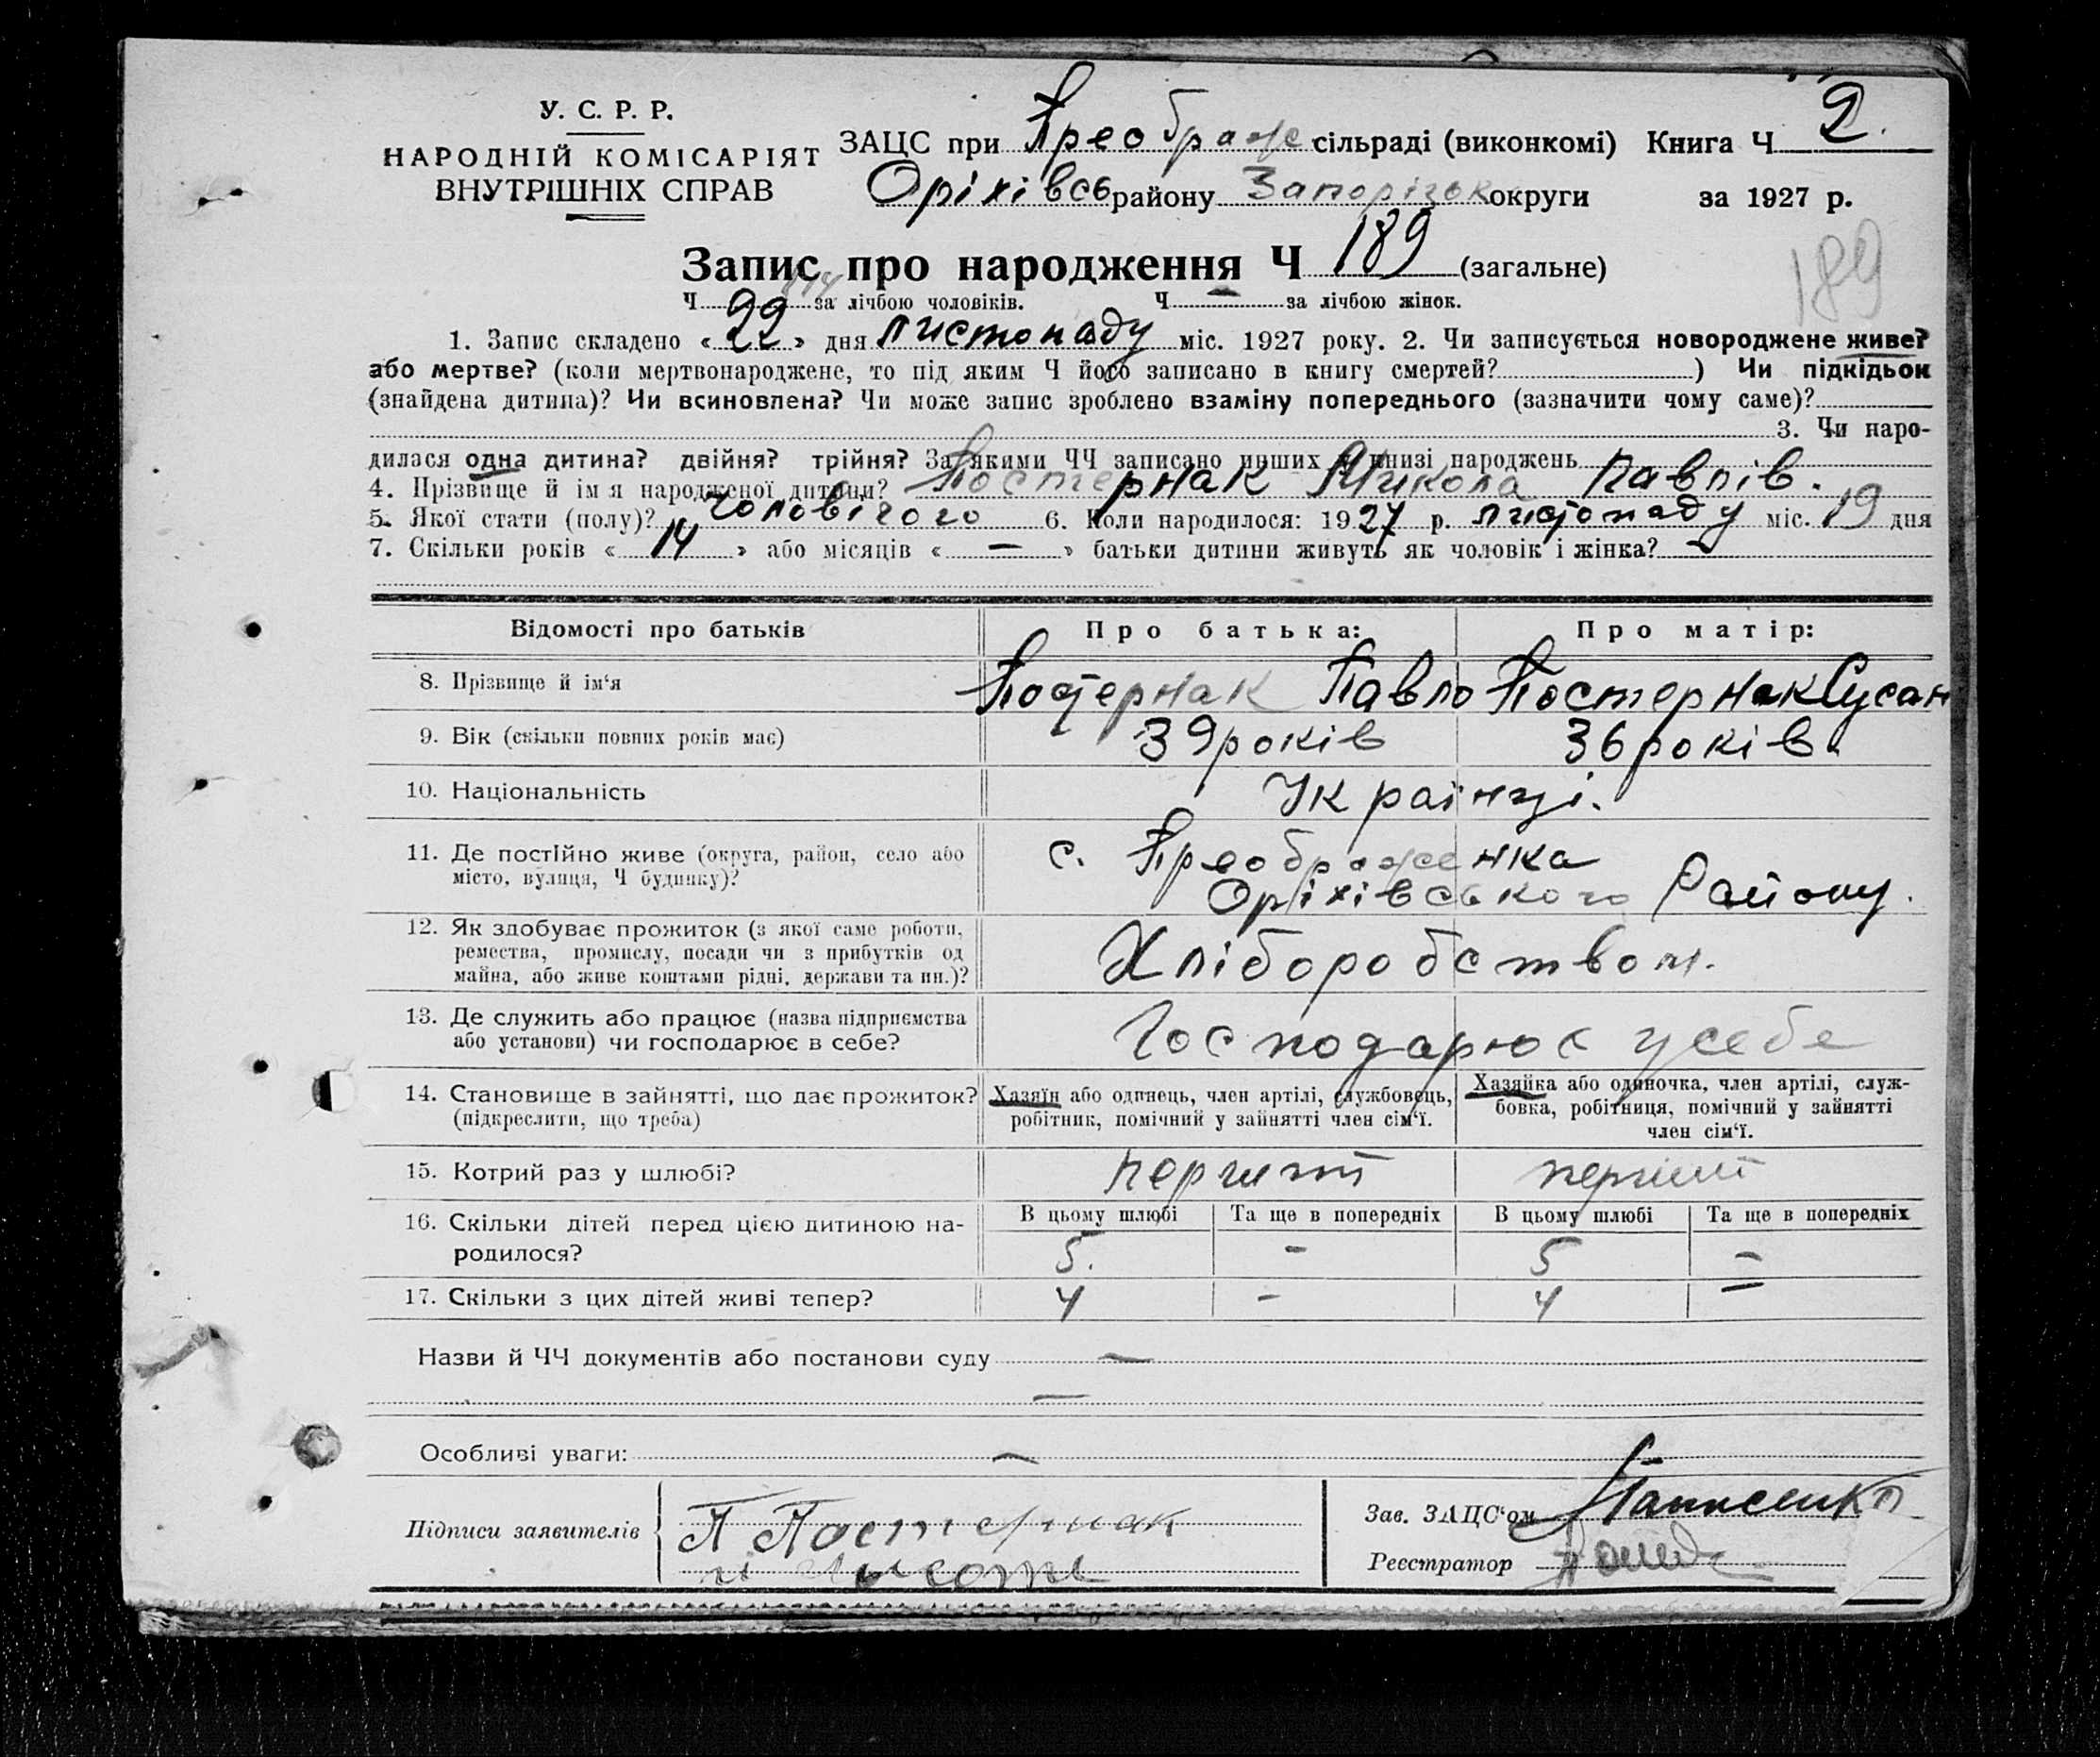 У. С. Р. Р.
НАРОДНІЙ КОМІСАРІЯТ
ВНУТРІШНІХ СПРАВ
ЗАЦС при Преображ сільраді (виконкомі) Книга Ч 2.
Оріхівсь району Запорізьк округи за 1927 р.
Запис про народження Ч 189 (загальне)
189
Ч за лічбою чоловіків. Ч — за лічбою жінок.
1. Запис складено « 22 » дня листопаду міс. 1927 року. 2. Чи записується новороджене живе?
або мертве? (коли мертвонароджене, то під яким Ч його записано в книгу смертей? ) Чи підкідьок
(знайдена дитина)? Чи всиновлена? Чи може запис зроблено взаміну попереднього (зазначити чому саме)?
3. Чи наро-
дилася одна дитина? двійня? трійня? За якими ЧЧ записано инших в книзі народжень
4. Прізвище й ім я народженої дитини? Постернак Микола Павлів.
5. Якої стати (полу)? чоловічого 6. Коли народилося: 1927 р. листопаду міс. 19 дня
7. Скільки років « 14 » або місяців « — » батьки дитини живуть як чоловік і жінка? —
Відомості про батьків Про батька: Про матір:
8. Прізвище й ім‘я Постернак Павло Постернак Сусан
9. Вік (скільки повних років має) 39 років 36 років.
10. Національність Українці.
11. Де постійно живе (округа, район, село або
місто, вулиця, Ч будинку)?
с. Преображенка
Оріхівського Району.
12. Як здобуває прожиток (з якої саме роботи,
ремества, промислу, посади чи з прибутків од
майна, або живе коштами рідні, держави та ин.)?
Хліборобством.
13. Де служить або працює (назва підприємства
або установи) чи господарює в себе?
Господарює у себе
14. Становище в зайнятті, що дає прожиток?
(підкреслити, що треба)
Хазяїн або одинець, член артілі, службовець,
робітник, помічний у зайнятті член сім‘ї.
Хазяйка або одиночка, член артілі, служ-
бовка, робітниця, помічний у зайнятті
член сім‘ї.
15. Котрий раз у шлюбі? перший перший
16. Скільки дітей перед цією дитиною на-
родилося?
В цьому шлюбі Та ще в попередніх В цьому шлюбі Та ще в попередніх
5. - 5 -
17. Скільки з цих дітей живі тепер? 4 - 4 -
Назви й ЧЧ документів або постанови суду —
—
Особливі уваги: —
Підписи заявителів П Постернак
Зав. ЗАЦС‘ом
Реєстратор